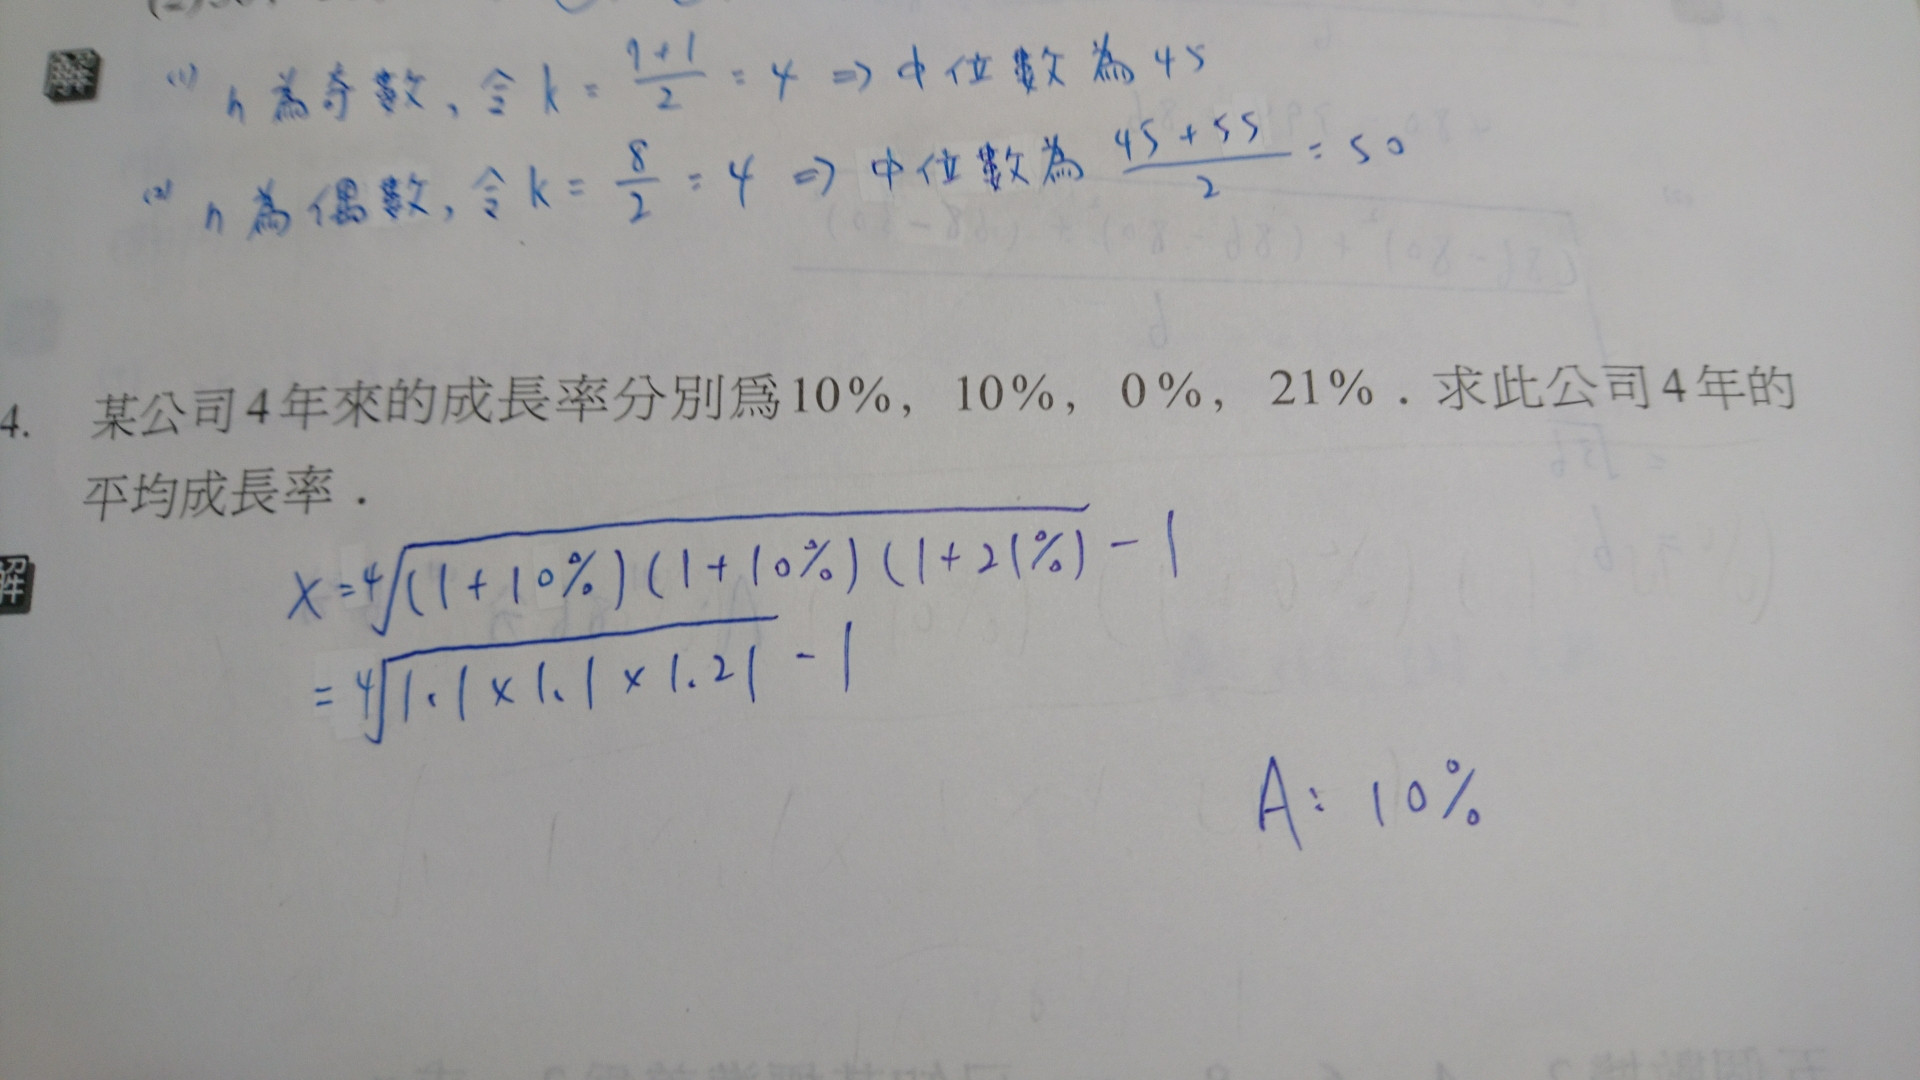 解 (1) n為奇數,令k=7+1/2=4⇒中位數為45
(2) n為偶數,令k=8/2=4⇒中位數為45+55/2=50
4. 某公司4年來的成長率分別爲10%,10%,0%,21%.求此公司4年的
平均成長率.
解 x=⁴√(1+10%)(1+10%)(1+21%)-1
=⁴√1.1×1.1×1.21-1
A:10%